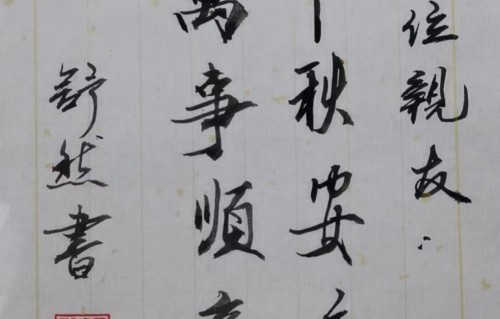 位親友：
秋安
萬事順
舒然書